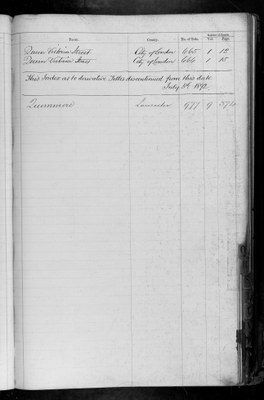 Parish. County. No. of Title. Vol. Page.
Queen Victoria Street City of London 665 1 12
Queen Victoria Street City of London 666 1 15
This Index as to derivative Titles discontinued from this date
July 8th 1892.
Quernmore Lancaster 977 9